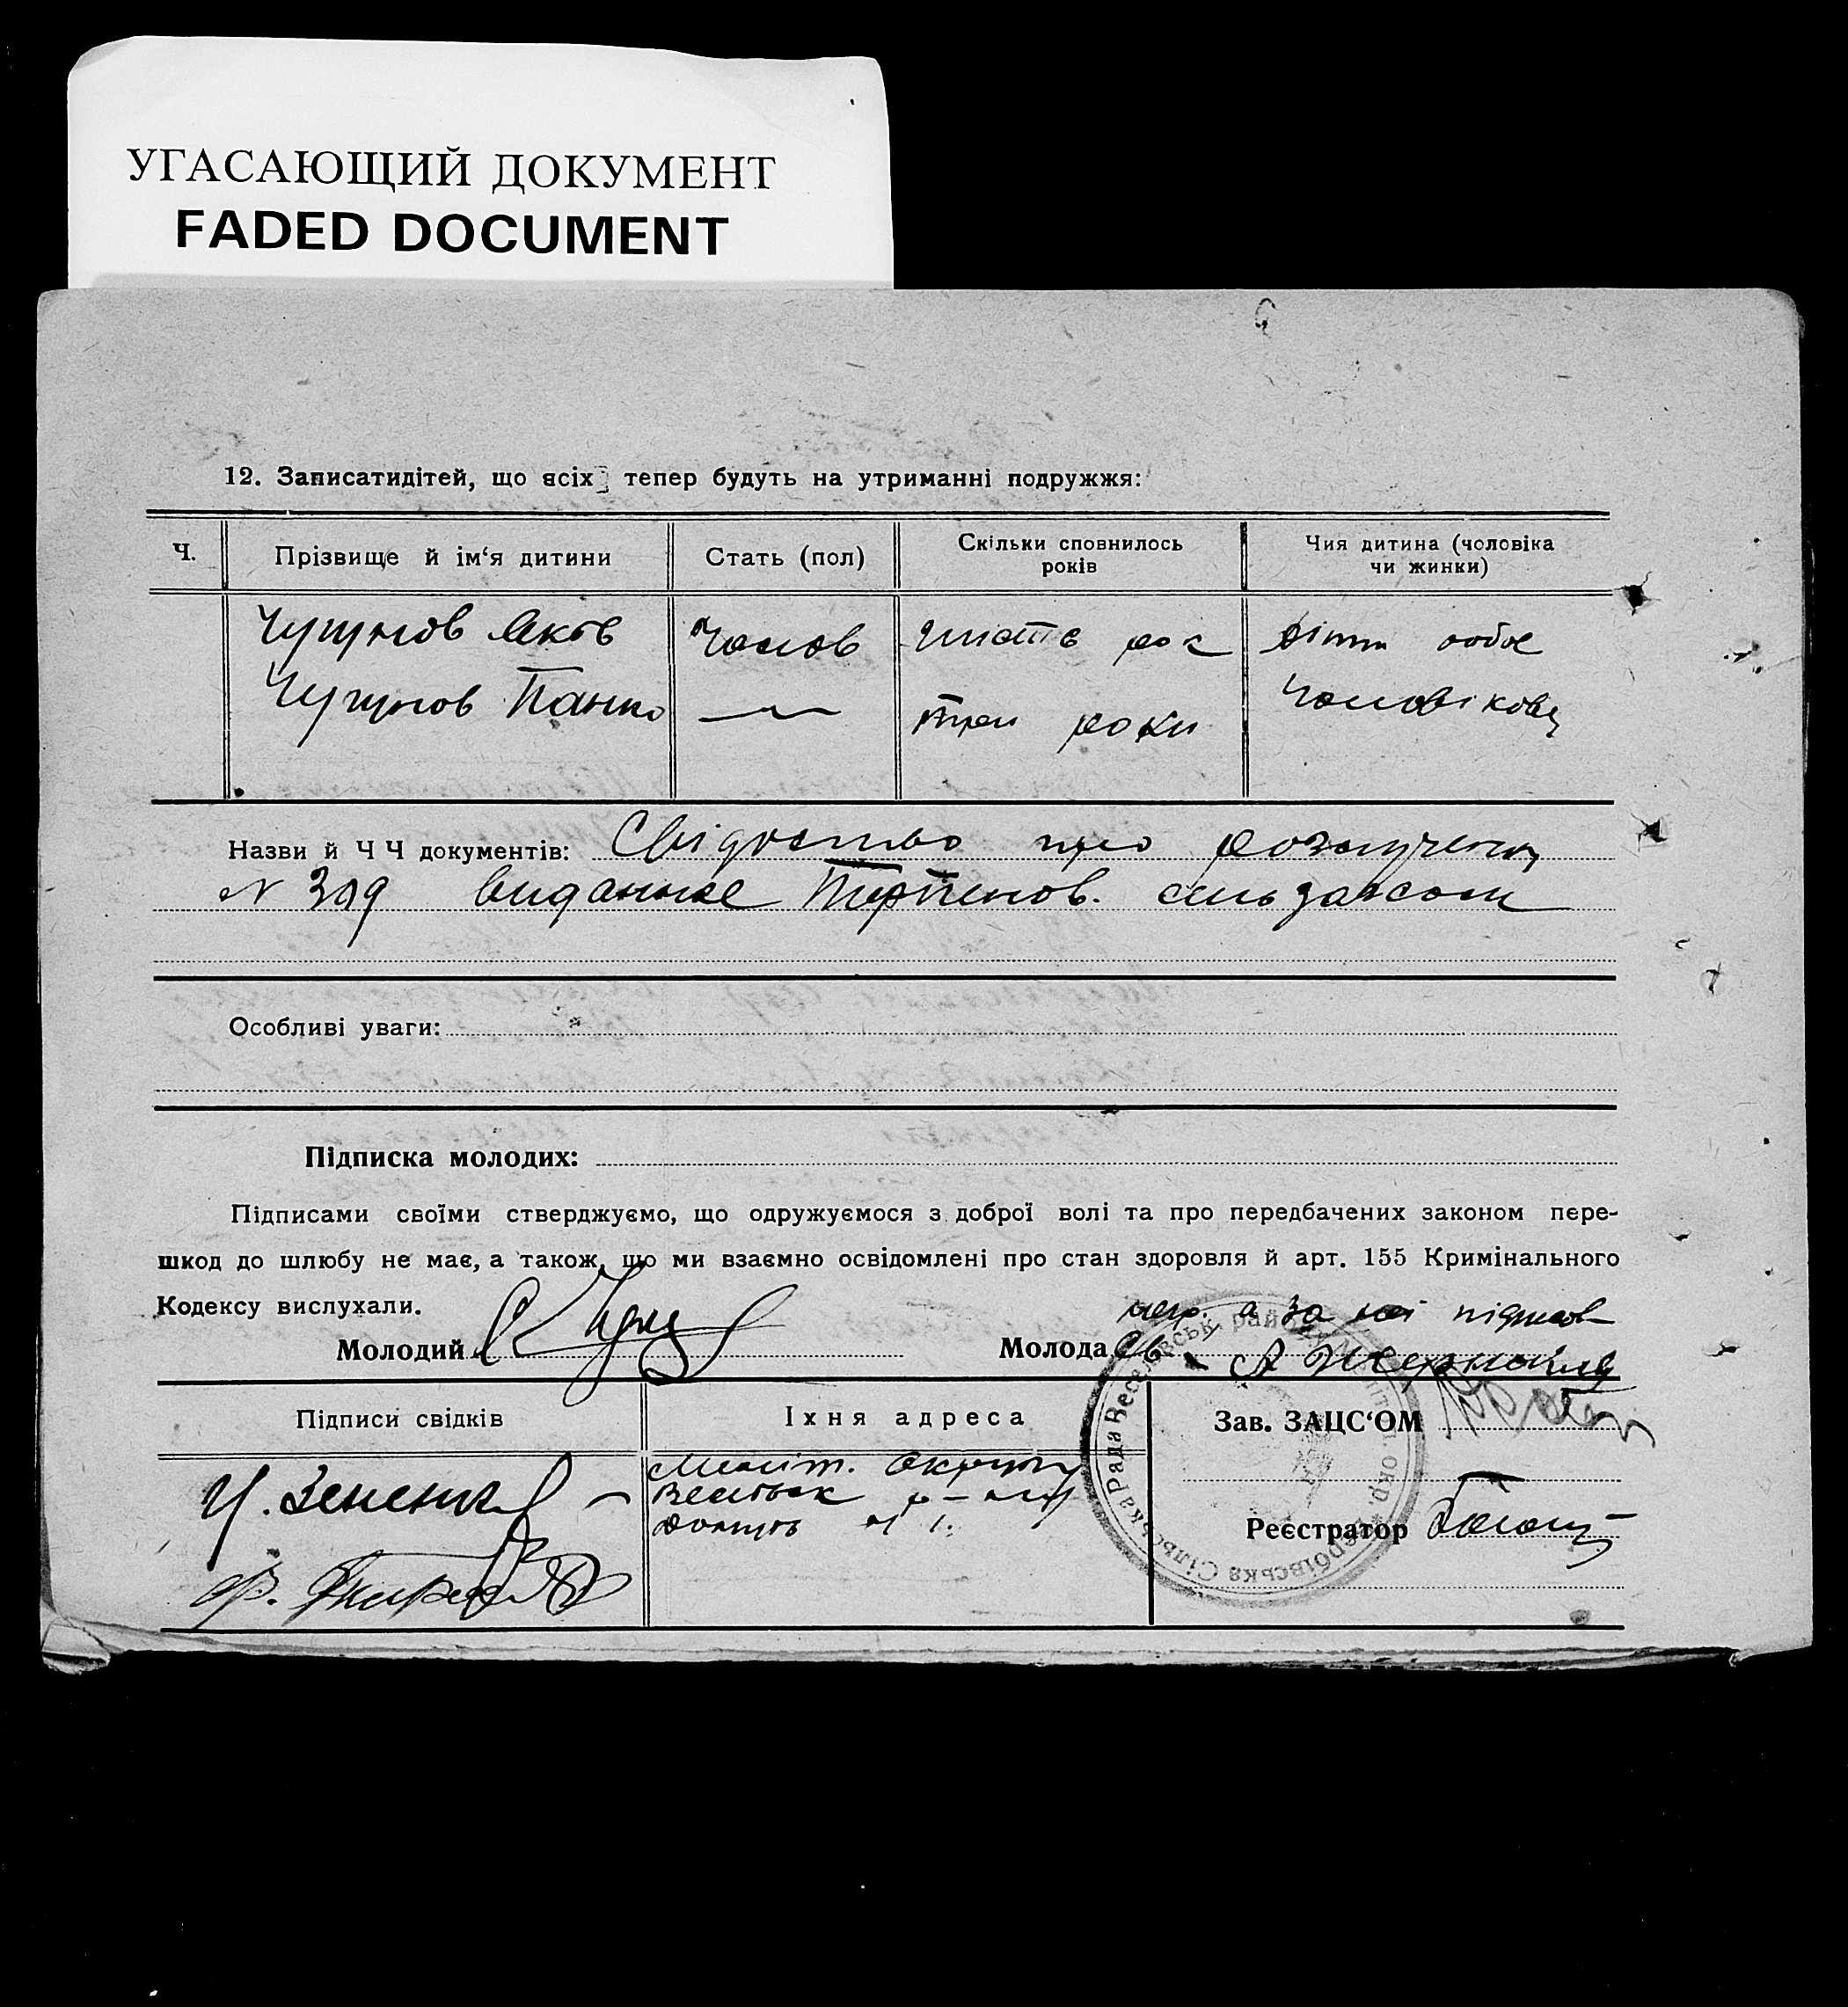 УГАСАЮЩИЙ ДОКУМЕНТ
FADED DOCUMENT
12. Записатидітей, що всіх тепер будуть на утриманні подружжя:
Ч.
Прізвище й ім‘я дитини
Стать (пол)
Скільки сповнилось
років
Чия дитина (чоловіка
чи жинки)
Чугунов Яків
Чолов
шість рок
діти обоє
Чугунов Панко
три роки
Чоловікови
Назви й Ч Ч документів: Свідоство про розлучення
N 309 виданное сельзаксом
Особливі уваги:
Підписка молодих:
Підписами своїми стверджуємо, що одружуємося з доброї волі та про передбачених законом пере-
шкод до шлюбу не має, а також, що ми взаємно освідомлені про стан здоровля й арт. 155 Кримінального
Кодексу вислухали.
Молодий
негр. а за неї підписов
Молода
Підписи свідків
Їхня адреса
Зав. ЗАЦС‘ОМ
Меліт. Округи
Весельск р-ну
Реєстратор
Рада Веселівськ. район
окр.
ербівська Сільська